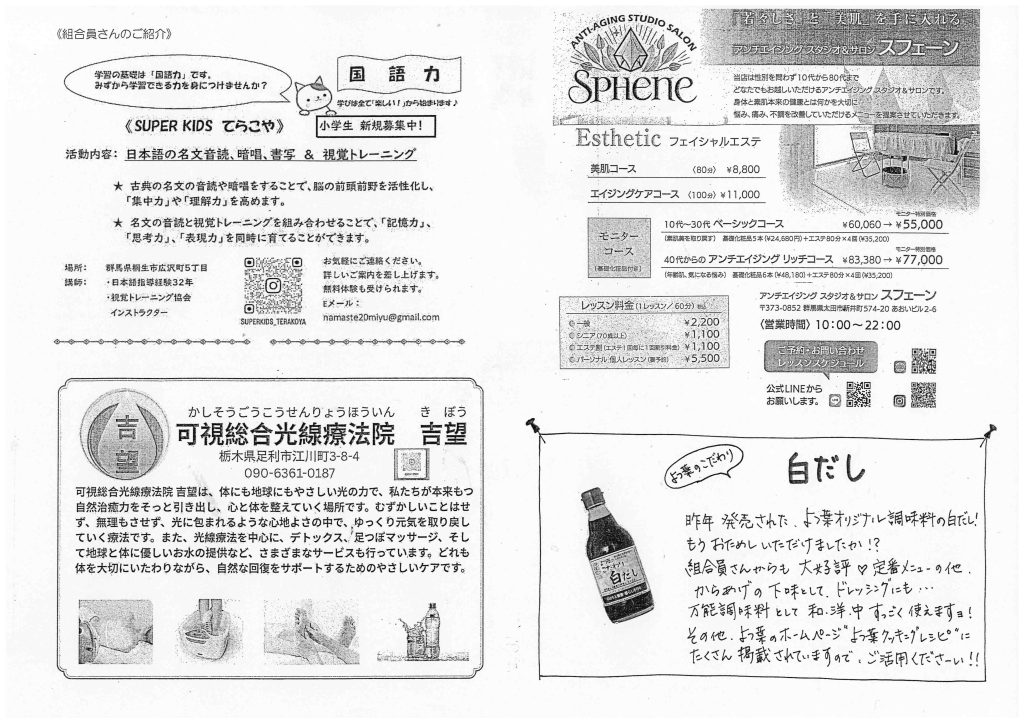 《組合員さんのご紹介》
学習の基礎は「国語力」です。
みずから学習できる力を身につけませんか？
国 語 力
学びは全て「楽しい！」から始まります♪
《SUPER KIDS てらこや》
小学生 新規募集中！
活動内容： 日本語の名文音読、暗唱、書写 ＆ 視覚トレーニング
★ 古典の名文の音読や暗唱をすることで、脳の前頭前野を活性化し、
「集中力」や「理解力」を高めます。
★ 名文の音読と視覚トレーニングを組み合わせることで、「記憶力」、
「思考力」、「表現力」を同時に育てることができます。
場所： 群馬県桐生市広沢町５丁目
講師： ・日本語指導経験３２年
・視覚トレーニング協会
インストラクター
SUPERKIDS_TERAKOYA
お気軽にご連絡ください。
詳しいご案内を差し上げます。
無料体験も受けられます。
Eメール：
namaste20miyu@gmail.com
吉望
かしそうごうこうせんりょうほういん きぼう
可視総合光線療法院 吉望
栃木県足利市江川町3-8-4
090-6361-0187
可視総合光線療法院 吉望は、体にも地球にもやさしい光の力で、私たちが本来もつ
自然治癒力をそっと引き出し、心と体を整えていく場所です。むずかしいことはせ
ず、無理もさせず、光に包まれるような心地よさの中で、ゆっくり元気を取り戻し
ていく療法です。また、光線療法を中心に、デトックス、足つぼマッサージ、そし
て地球と体に優しいお水の提供など、さまざまなサービスも行っています。どれも
体を大切にいたわりながら、自然な回復をサポートするためのやさしいケアです。
ANTI-AGING STUDIO SALON
SPHENE
「若々しさ」と「美肌」を手に入れる
アンチエイジング スタジオ＆サロン スフェーン
当店は性別を問わず10代から80代まで
どなたでもお越しいただけるアンチエイジング スタジオ＆サロンです。
身体と素肌本来の健康とは何かを大切に
悩み、痛み、不調を改善していただけるメニューを提案させていただきます。
Esthetic フェイシャルエステ
美肌コース 〈80分〉 ￥8,800
エイジングケアコース 〈100分〉 ￥11,000
モニター
コース
（基礎化粧品付き）
モニター特別価格
10代～30代 ベーシックコース ￥60,060 → ￥55,000
（素肌美を取り戻す） 基礎化粧品５本（￥24,860円）＋エステ80分×４回（￥35,200）
モニター特別価格
40代からの アンチエイジング リッチコース ￥83,380 → ￥77,000
（年齢肌、気になる悩み） 基礎化粧品６本（￥48,180）＋エステ80分×４回（￥35,200）
レッスン料金（１レッスン／60分）税込
◎ 一般 ￥2,200
◎ シニア（70歳以上） ￥1,100
◎ エステ割（エステ１回毎に１回割引料金） ￥1,100
◎ パーソナル 個人レッスン（要予約） ￥5,500
アンチエイジング スタジオ＆サロン スフェーン
〒373-0852 群馬県太田市新井町574-20 あおいビル2-6
〈営業時間〉 10：00～22：00
ご予約・お問い合わせ
レッスンスケジュール
公式LINEから
お願いします。
よつ葉のこだわり
白だし
白だし
昨年 発売された、よつ葉オリジナル調味料の白だし！
もう おためし いただけましたか！？
組合員さんからも 大好評♡定番メニューの他、
からあげの 下味として、ドレッシングにも…
万能調味料として 和、洋、中 すっごく使えますョ！
その他、よつ葉のホームページ"よつ葉クッキングレシピ"に
たくさん 掲載されていますので、ご活用くださーい！！